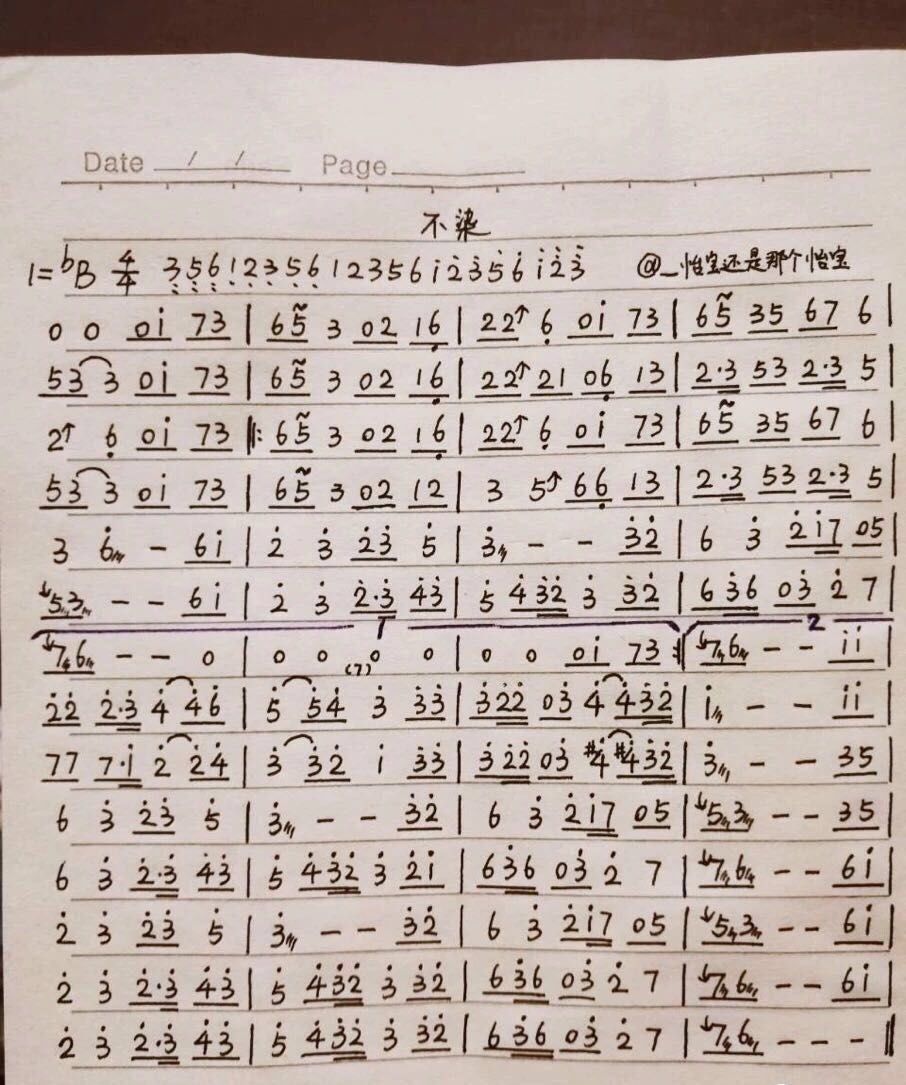 Date / / Page
不染
1=ᵇB 4/4 3̣̣5̣̣6̣̣1̣2̣3̣5̣6̣123561̇2̇3̇5̇6̇1̇̇2̇̇3̇̇ @_怡宝还是那个怡宝
0 0 01̇ 73 | 65 3 02 16̣ | 22↑ 6̣ 01̇ 73 | 65 35 67 6 |
53 3 01̇ 73 | 65 3 02 16̣ | 22↑ 21 06̣ 13 | 2·3 53 2·3 5 |
2↑ 6̣ 01̇ 73 ‖: 65 3 02 16̣ | 22↑ 6̣ 01̇ 73 | 65 35 67 6 |
53 3 01̇ 73 | 65 3 02 12 | 3 5↑ 66̣ 13 | 2·3 53 2·3 5 |
3 6̇ - 61̇ | 2̇ 3̇ 2̇3̇ 5̇ | 3̇ - - 3̇2̇ | 6 3̇ 2̇1̇7 05 |
↓53 - - 61̇ | 2̇ 3̇ 2̇·3̇ 4̇3̇ | 5̇ 4̇3̇2̇ 3̇ 3̇2̇ | 63̇6 03̇ 2̇ 7 |
1 2
↓76 - - 0 | 0 0 0 0 | 0 0 01̇ 73 :‖ ↓76 - - 1̇1̇ |
(7)
2̇2̇ 2̇·3̇ 4̇ 4̇6̇ | 5̇ 5̇4̇ 3̇ 3̇3̇ | 3̇2̇2̇ 03̇ 4̇ 4̇3̇2̇ | 1̇ - - 1̇1̇ |
77 7·1̇ 2̇ 2̇4̇ | 3̇ 3̇2̇ 1̇ 3̇3̇ | 3̇2̇2̇ 03̇ #4̇ #4̇3̇2̇ | 3̇ - - 35 |
6 3̇ 2̇3̇ 5̇ | 3̇ - - 3̇2̇ | 6 3̇ 2̇1̇7 05 | ↓53 - - 35 |
6 3̇ 2̇·3̇ 4̇3̇ | 5̇ 4̇3̇2̇ 3̇ 2̇1̇ | 63̇6 03̇ 2̇ 7 | ↓76 - - 61̇ |
2̇ 3̇ 2̇3̇ 5̇ | 3̇ - - 3̇2̇ | 6 3̇ 2̇1̇7 05 | ↓53 - - 61̇ |
2̇ 3̇ 2̇·3̇ 4̇3̇ | 5̇ 4̇3̇2̇ 3̇ 3̇2̇ | 63̇6 03̇ 2̇ 7 | ↓76 - - 61̇ |
2̇ 3̇ 2̇·3̇ 4̇3̇ | 5̇ 4̇3̇2̇ 3̇ 3̇2̇ | 63̇6 03̇ 2̇ 7 | ↓76 - - - ‖